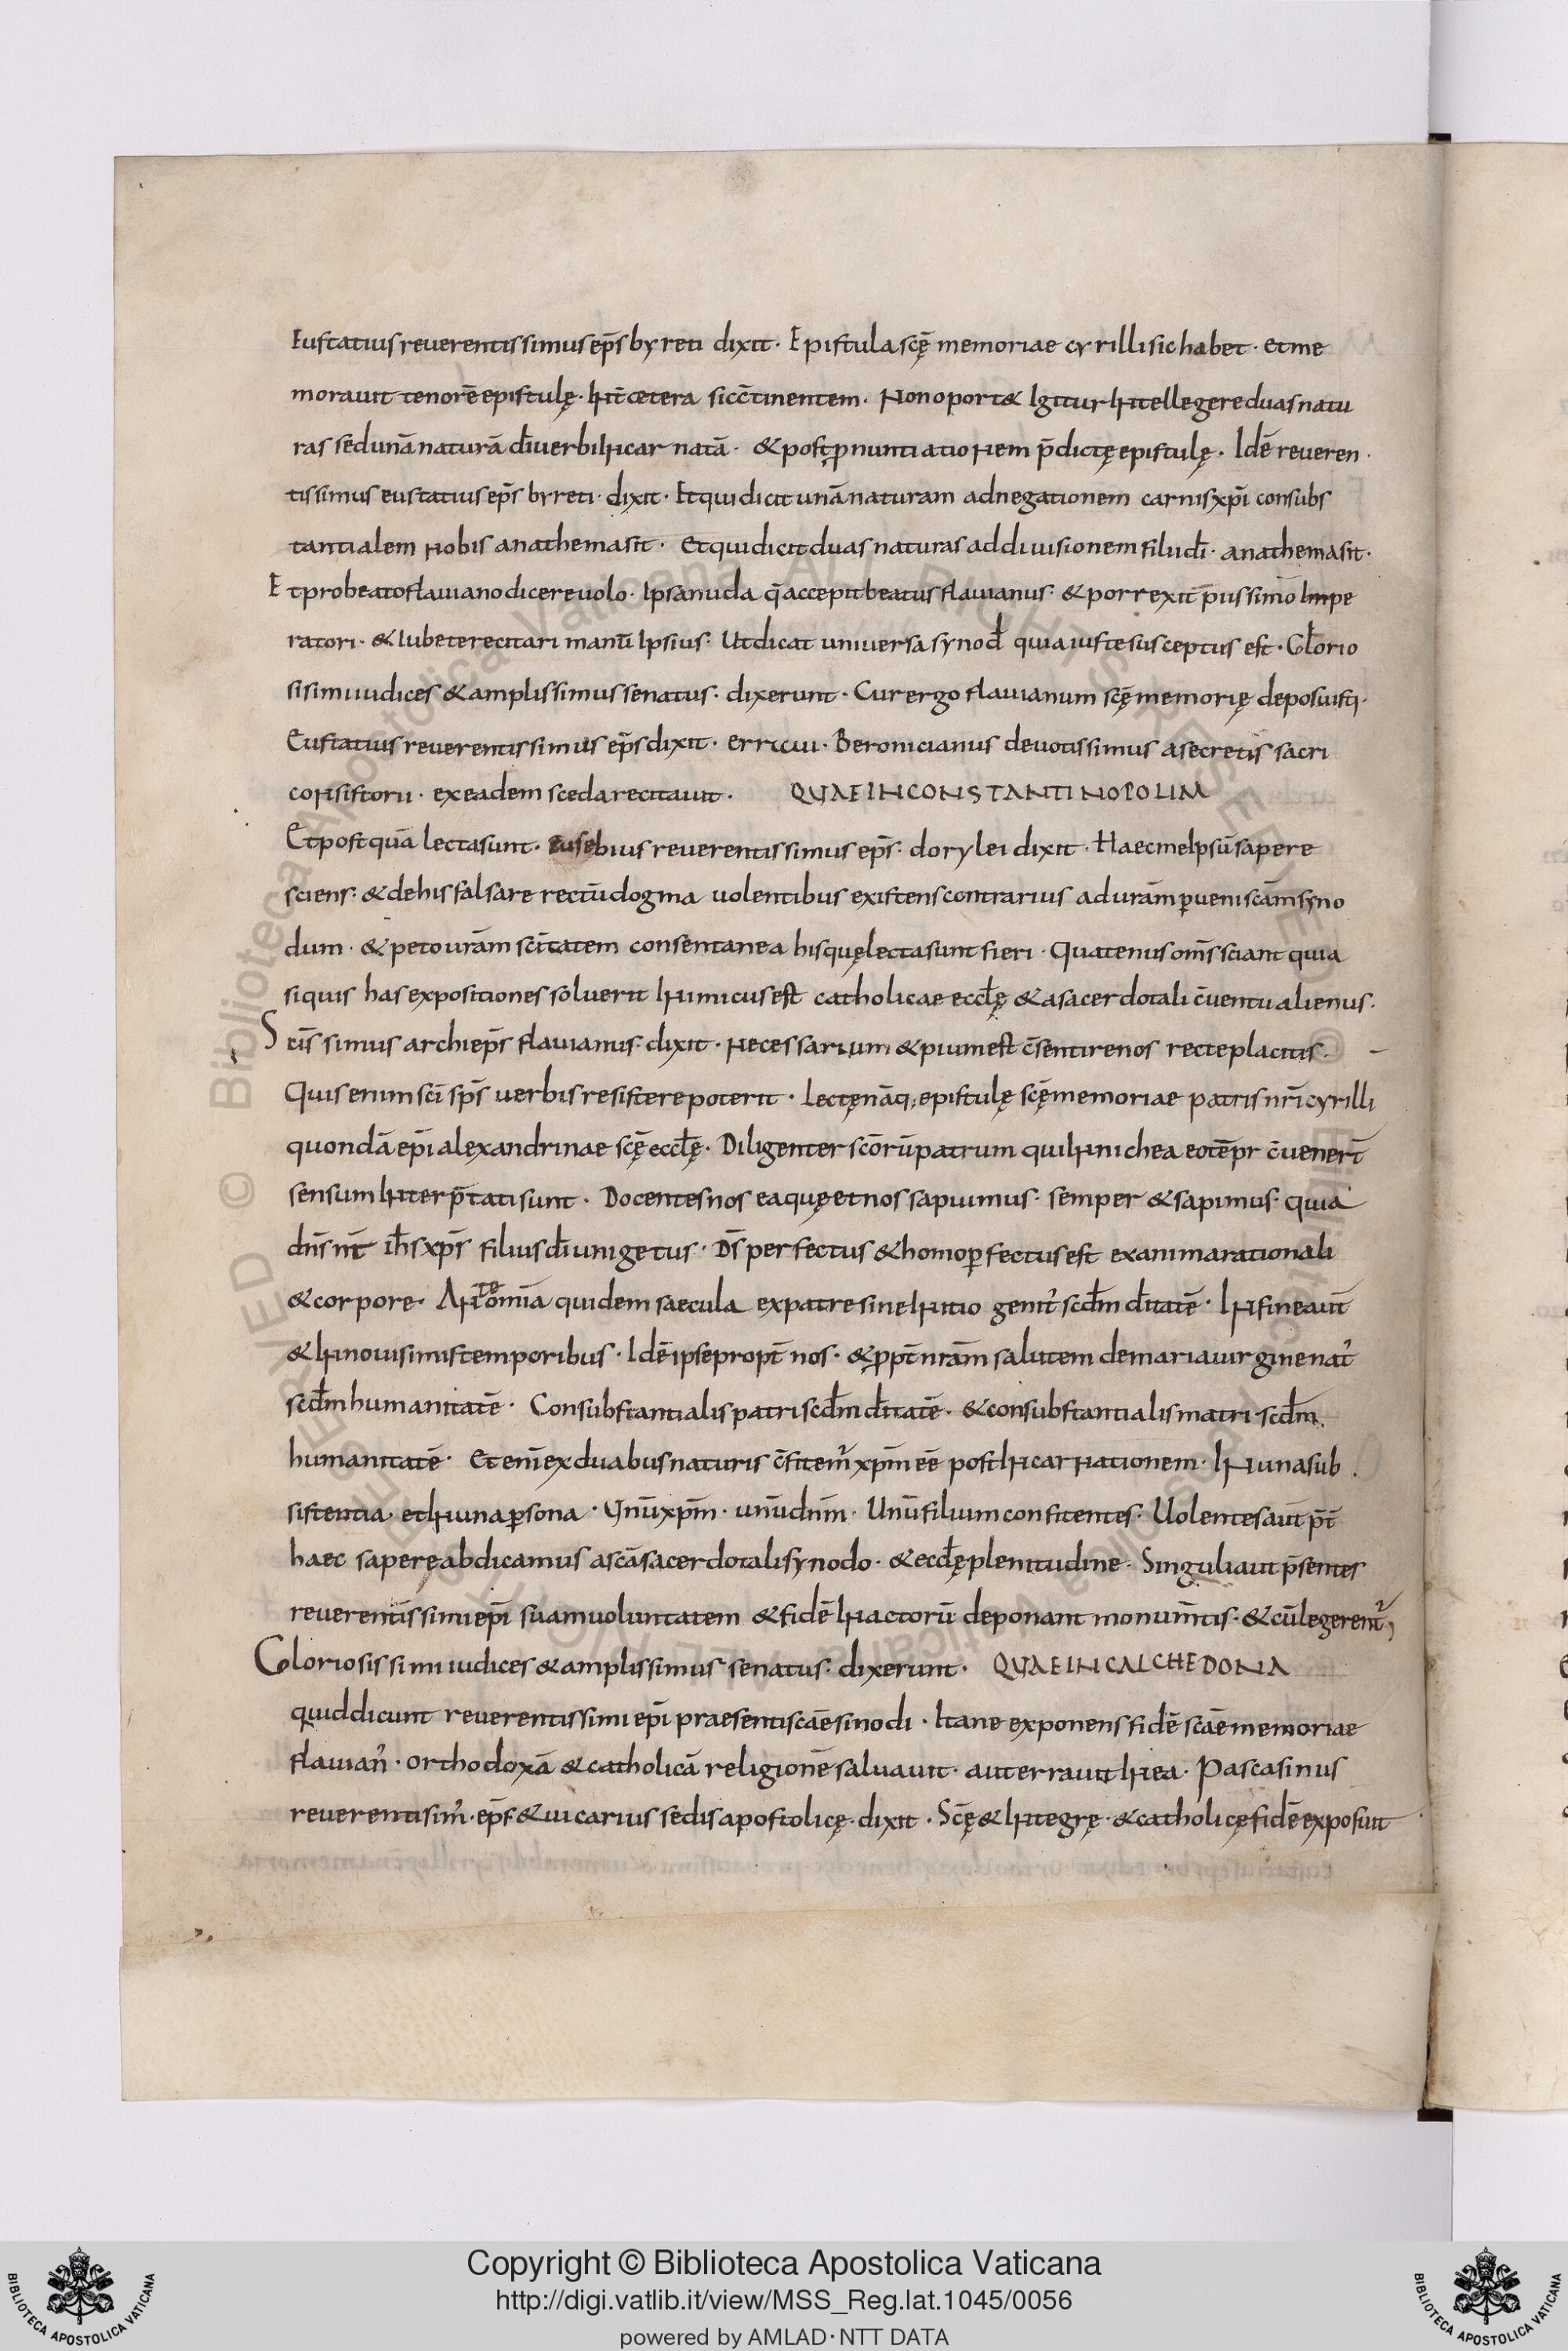 Eustatius reuerentissimus ep̄s byreti dixit · Epistula scę̄ memoriae cyrilli sic habet · et me
morauit tenorē epistulę · int̄ cetera sic c̄tinentem · Non oport& Igitur Intellegere duas natu
ras sed unā naturā d̄i uerbi Incarnatā · & post ꝓnuntiationem p̄dictę epistulę · Idē reueren ·
tissimus eustatius ep̄s byreti · dixit · Et qui dicit unā naturam ad negationem carnis xp̄i consubs
tantialem nobis anathema sit · Et qui dicit duas naturas ad diuisionem filii d̄i · anathema sit ·
Et pro beato flauiano dicere uolo · Ipsa nuda q̄ accepit beatus flauianus · & porrexit piissimo Impe
ratori · & Iubete recitari manū Ipsius · Ut dicat uniuersa synod̄ quia iuste susceptus est · Gl̄orio
sisimi iudices & amplissimus senatus · dixerunt · Cur ergo flauianum scę̄ memorię deposuisti ·
Eustatius reuerentissimus ep̄s dixit · erraui · Beronicianus deuotissimus a secretis sacri
consistorii · ex eadem sceda recitauit · QUAE IN CONSTANTINOPOLIM
Et postquā lecta sunt · Eusebius reuerentissimus ep̄s · dorylei dixit · Haec me Ipsū sapere
sciens · & de his falsare rectū dogma uolentibus existens contrarius ad urām ꝑueni scām syno
dum · & peto urām sc̄itatem consentanea his quę lecta sunt fieri · Quatenus om̄s sciant quia
siquis has expositiones soluerit Inimicus est catholicae eccl̄ę & a sacerdotali c̄uentu alienus ·
Sc̄issimus archiep̄s flauianus · dixit · Necessarium & pium est c̄sentire nos recte placitis ·
Quis enim sc̄i sp̄s uerbis resistere poterit · Lectę nāq; epistulę scę̄ memoriae patris nr̄i cyrilli
quondā ep̄i alexandrinae scę̄ eccl̄ę · Diligenter sc̄orū patrum qui In nichea eo tēpr c̄uenert̄
sensum Interp̄tati sunt · Docentes nos ea quę et nos sapuimus · semper & sapimus · quia
dn̄s nt̄ ih̄s xp̄s filius d̄i unigetus · D̄s perfectus & homo ꝑfectus est ex anima rationali
& corpore · Ante om̄ia quidem saecula ex patre sine Initio genit' scdm̄ d̄itatē · In fine aut̄
& In nouisimis temporibus · Idē ipse propt̄ nos · & ꝓpt̄ nrām salutem de maria uirgine nat'
scdm̄ humanitatē · Consubstantialis patri scdm̄ d̄itatē · & consubstantialis matri scdm̄
humanitatē · Et enī ex duabus naturis c̄fitem' xpm̄ eē post Incarnationem · In una sub
sistentia · et In una ꝑsona · Unū xpm̄ · unū dnm̄ · Unū filium confitentes · Uolentes aut̄ p̄t
haec sapere abdicamus a scā sacerdotali synodo · & eccl̄ę plenitudine · Singuli aut̄ p̄sentes
reuerentissimi ep̄i suam uoluntatem & fidē In actorū deponant monum̄tis · & cū legerent'
Gloriosissimi iudices & amplissimus senatus · dixerunt · QUAE IN CALCHEDONA
quid dicunt reuerentissimi ep̄i praesenti scāe sinodi · Itane exponens fidē scāe memoriae
flauian' · orthodoxā & catholicā religionē saluauit · aut errauit In ea · Pascasinus
reuerentisim' · ep̄s & uicarius sedis apostolicę · dixit · Scę̄ & Integrę · & catholicę fidē exposuit
Copyright © Biblioteca Apostolica Vaticana
http://digi.vatlib.it/view/MSS_Reg.lat.1045/0056
powered by AMLAD · NTT DATA
BIBLIOTECA APOSTOLICA VATICANA
BIBLIOTECA APOSTOLICA VATICANA